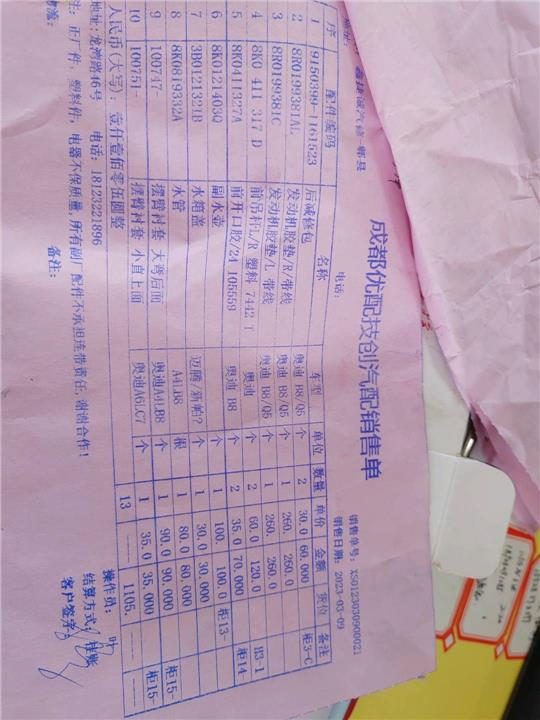 成都优配技创汽配销售单
销售单号: XS0123030900021
鑫捷诚汽修 郫县 电话: 销售日期: 2023-03-09
序 配件编码 名称 车型 单位 数量 单价 金额 货位 备注
1 9150399-1161523 后减修包 奥迪 B8/Q5 个 2 30.0 60.000 柜3-C
2 8R0199381AL 发动机胶垫/R/带线 奥迪 B8/Q5 个 1 260. 260.0
3 8R0199381C 发动机胶垫/L 带线 奥迪 B8/Q5 个 1 260. 260.0
4 8K0 411 317 D 前吊杆L/R 塑料 7442 T 奥迪 个 2 60.0 120.0
5 8K0411327A 前开口胶/24 105559 奥迪 B8 个 2 35.0 70.000 柜14-
6 8K0121403Q 副水壶 个 1 100. 100.0 柜13-
7 3B0121321B 水箱盖 迈腾/新帕? 个 1 30.0 30.000
8 8K0819332A 水管 A4LB8 根 1 80.0 80.000
9 100747- 摆臂衬套 大弯后面 奥迪A4LB8 个 1 90.0 90.000 柜15-
10 100751- 摆臂衬套 小直上面 奥迪A6LC7 个 1 35.0 35.000 柜15-
13 1105.
人民币(大写): 壹仟壹佰零伍圆整
地址: 龙湾路46号 电话: 18123221896 操作员: 叶
物流: 备注: 结算方式: 挂账
注: 正厂件, 塑料件, 电器不保质量, 所有副厂配件不承担连带责任, 谢谢合作! 客户签字: